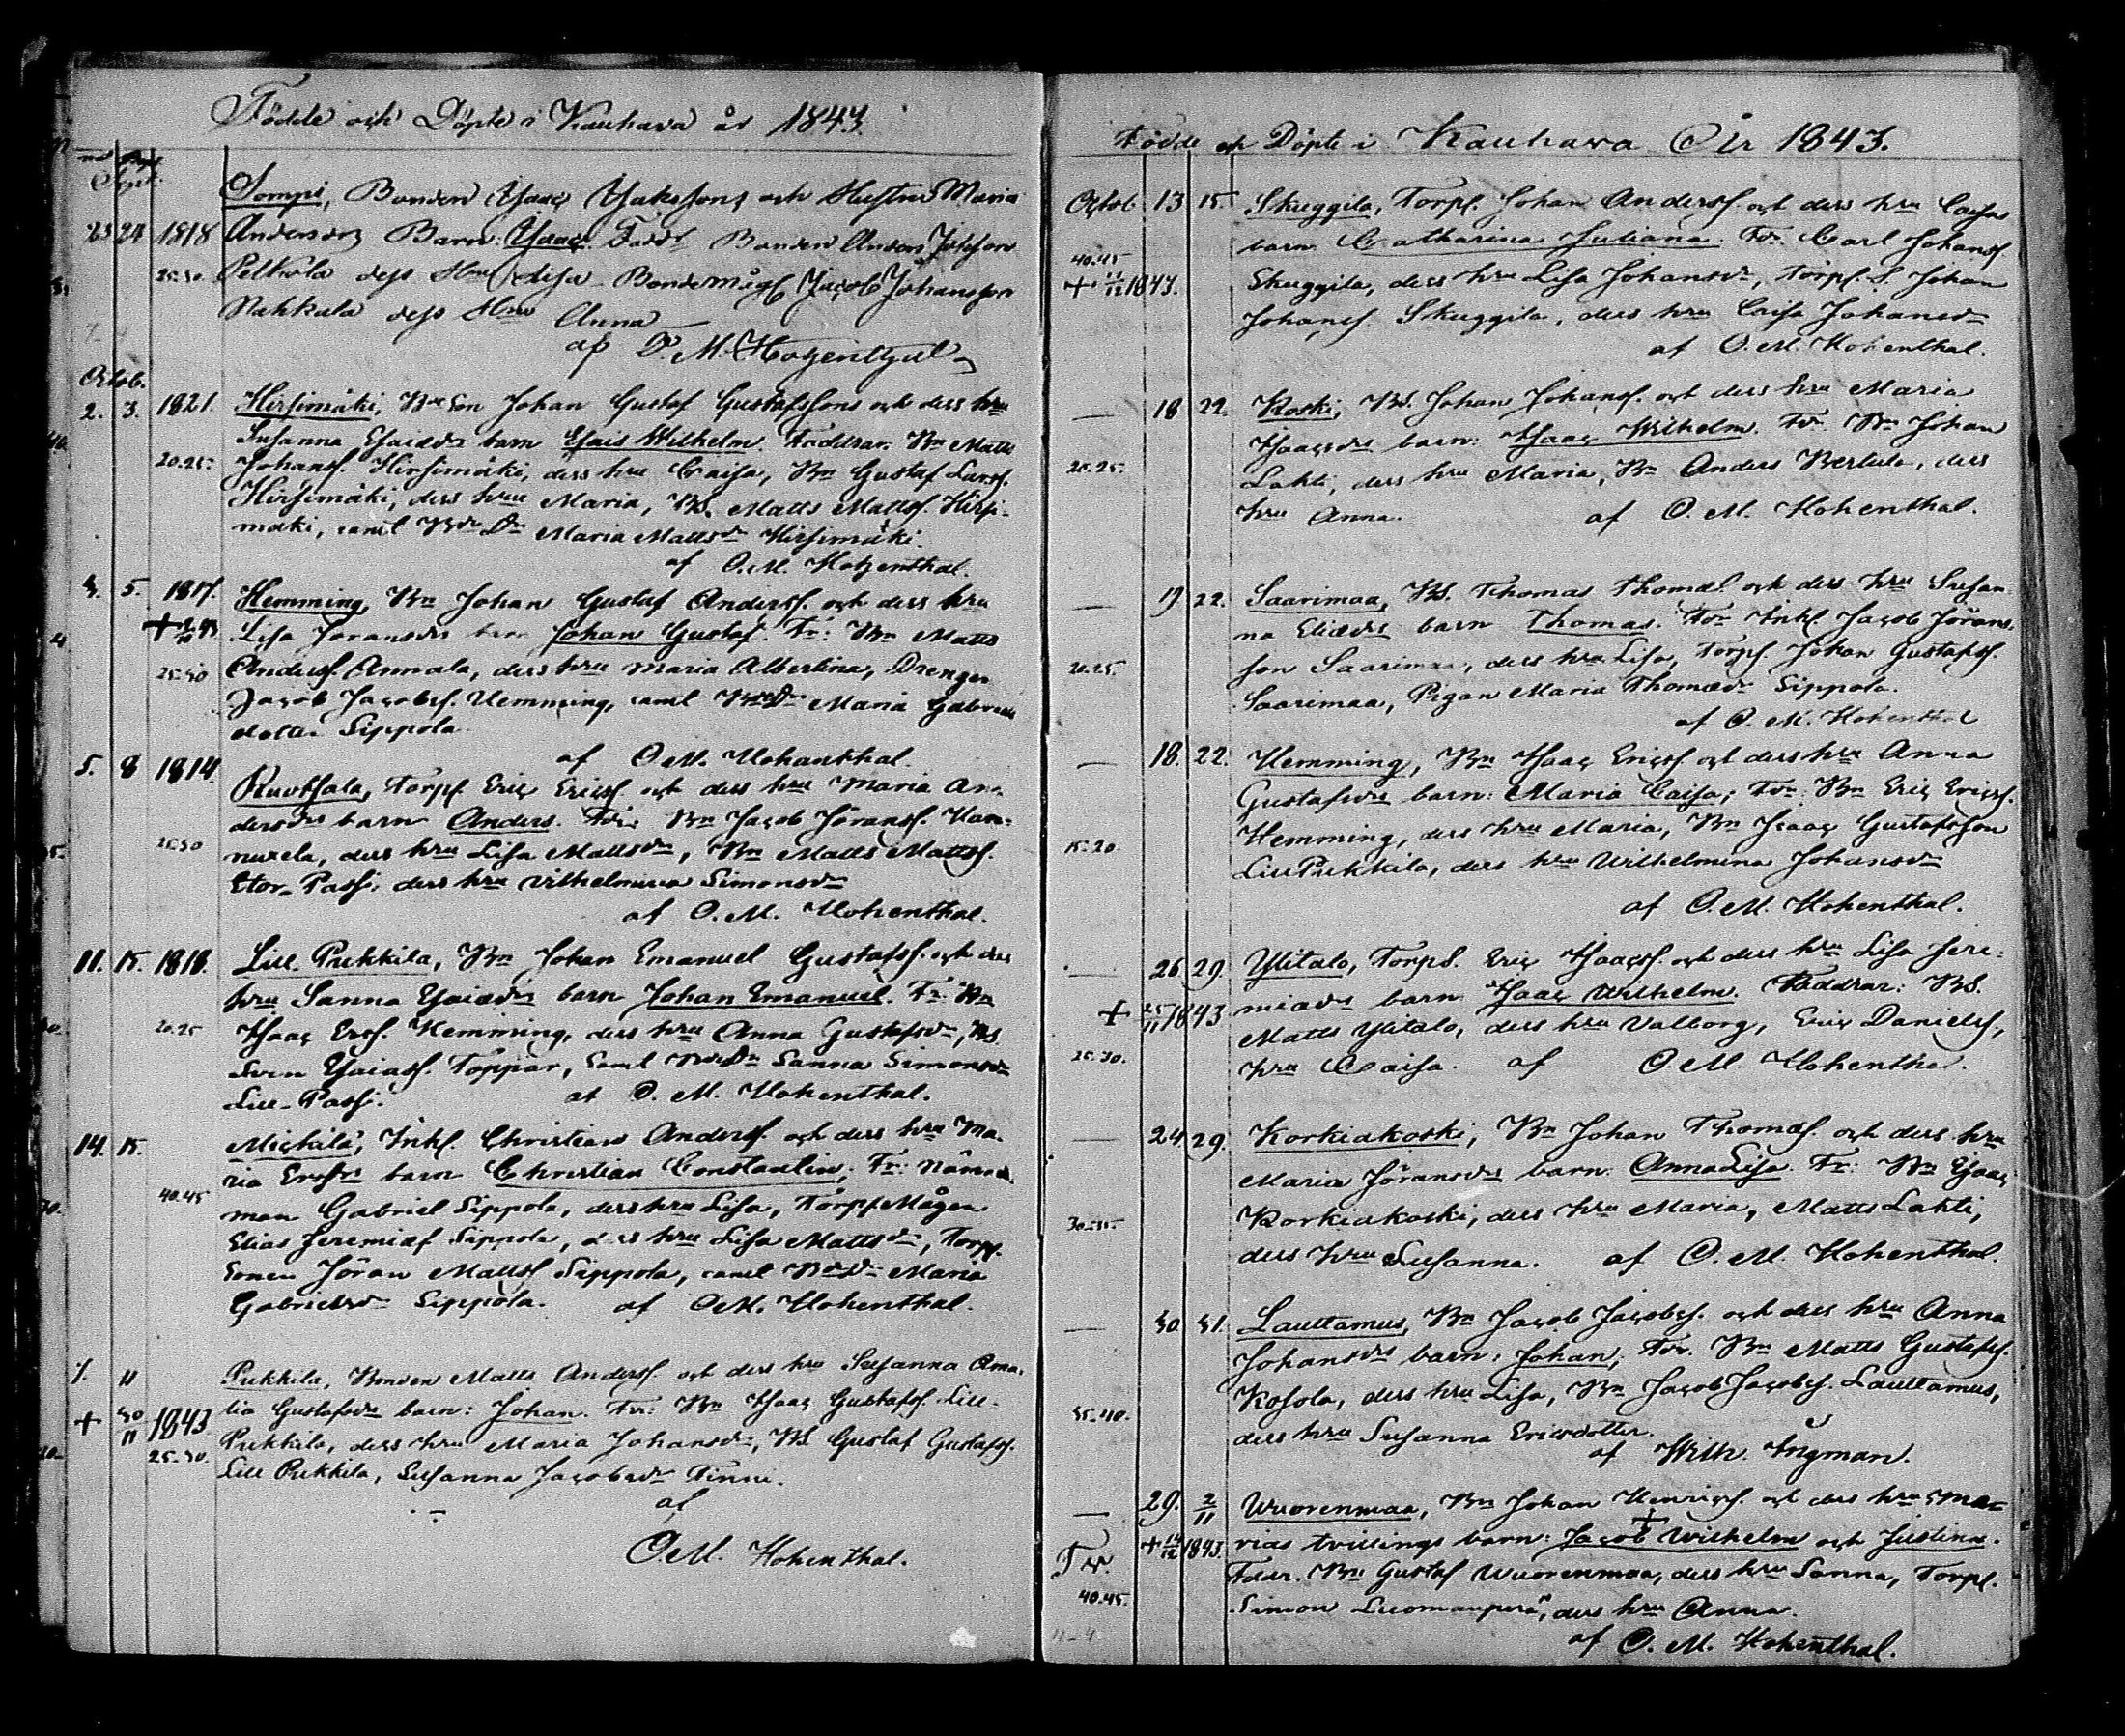 Födde och Döpte i Kauhava år 1843.
Sept.
Sompi, Bonden Isaac Isakssons och Hustru Maria
23 24 1818 Andersdrs Barn: Isaac. Fadd: Bonden Anders Johsson
25.30 Pelkola dess Hru Lisa Bondemågs Jacob Johansson
Nahkala dess Hru Anna
af O. M. Hohenthal
Octob.
2. 3. 1821. Hirsimäki, Bne Son Johan Gustaf Gustafssons och dess hru
Susanna Esaiædrs barn Esais Wilhelm. Faddrar: Bn Matts
20.25. Johanss. Hirsimäki, dess hru Caisa, Bn Gustaf Larss.
Hirsimäki, dess hru Maria, BS. Matts Mattss. Hirsi-
mäki, samt Bde Dr Maria Mattsdr Hirsimäki.
af O. M. Hohenthal.
3. 5. 1817. Hemming, Bn Johan Gustaf Anderss. och dess hru
Lisa Joransdrs barn Johan Gustaf. Fr: Bn Matts
25.30 Anderss. Annala, dess hru Maria Albertina, Drengen
Jacob Jacobss. Hemming, samt Bde Dr Maria Gabriels
dotter Sippola.
af O. M. Hohenthal.
5. 8 1814 Ruotsala, Torp. Eric Ericss. och dess hru Maria An-
dersdrs barn Anders. Fdr: Bn Jacob Joranss. Kan-
25.30 nuxela, dess hru Lisa Mattsdr, Bn Matts Mattss.
Stor-Passi, dess hru Vilhelmina Simonsdr
af O. M. Hohenthal.
11. 15. 1818. Lill-Pukkila, Bn Johan Emanuel Gustafss. och dess
hru Sanna Esaiædrs barn Johan Emanuel. Fr: Bn
20.25 Isaac Ercs. Hemming, dess hru Anna Gustafsdr, BS
Sven Esaiass. Toppar, samt Bde Dr Sanna Simonsdr
Lill-Passi. af O. M. Hohenthal.
14. 15. Mickilä, Inh. Christian Anderss. och dess hru Ma-
ria Ersdrs barn Christian Constantin; Fr: Nämnde-
40.45 man Gabriel Sippola, dess hru Lisa, Torpp. Mågen
Elias Jeremiæs Sippola, dess hru Lisa Mattsdr, Torp.
Sonen Jöran Mattss Sippola, samt Bde Dr Maria
Gabrielsdr Sippola. af O. M. Hohenthal.
7. 11 Pukkila, Bonden Matts Anderss. och dess hru Susanna Ama-
+ 30/11 1843 lia Gustafsdrs barn: Johan. Fr: Bn Isaac Gustafss. Lill-
25.30. Pukkila, dess hru Maria Johansdr, BS Gustaf Gustafss.
Lill Pukkila, Susanna Jacobsdr Finni.
af
O. M. Hohenthal.
Födde och Döpte i Kauhava År 1843.
Octob 13 15. Skuggila, Torp. Johan Anderss. och dess hru Caisas
40.45 barn Catharina Juliana. Fr. Carl Johanss.
Skuggila, dess hru Lisa Johansdr, Torp. S. Johan
Johanss. Skuggila, dess hru Caisa Johansdr
af O. M. Hohenthal.
18 22. Koski, BS. Johan Johanss. och dess hru Maria
Isaacsdrs barn: Isaac Wilhelm. Fr. Bn Johan
20.25. Lahti, dess hru Maria, Bn Anders Bertula, dess
hru Anna. af O. M. Hohenthal.
19 22. Saarimaa, BS. Thomas Thomæs. och dess hru Susan
na Eliædrs barn Thomas. Fdr Inh. Jacob Jörans-
20.25 son Saarimaa, dess hru Lisa, Torp. Johan Gustafss.
Saarimaa, Pigan Maria Thomædr Sippola.
af O. M. Hohenthal
18. 22. Hemming, Bn Isaac Ericss. och dess hru Anna
Gustafsdrs barn: Maria Caisa; Fdr: Bn Eric Ericss.
15.20. Hemming, dess hru Maria, Bn Isaac Gustafsson
Lill Pukkila, dess hru Wilhelmina Johansdr
af O. M. Hohenthal.
26 29. Ylitalo, Torp S. Eric Isaacss. och dess hru Lisa Jere-
+ 25/11 1843 miædrs barn Isaac Wilhelm. Faddrar: BS.
Matts Ylitalo, dess hru Valborg, Eric Danielss,
25.30. hru Caisa. af O. M. Hohenthal.
24 29. Korkiakoski, Bn Johan Thomæs. och dess hru
Maria Jöransdrs barn: Anna Lisa. Fr: Bn Isaac
Korkiakoski, dess hru Maria, Matts Lahti,
dess hru Susanna. af O. M. Hohenthal.
30 31. Lauttamus, Bn Jacob Jacobss. och dess hru Anna
Johansdrs barn: Johan; Fdr. Bn Matts Gustafss.
35.40. Kosola, dess hru Lisa, Bn Jacob Jacobss. Lauttamus,
dess hru Susanna Ericsdotter.
af Wilh. Ingman.
29. 2/11 Wuorenmaa, Bn Johan Henricss. och dess hru Ma-
+ 14/12 1843. rias tvillings barn: Jacob Wilhelm + och Justina.
Faddr. Bn Gustaf Wuorenmaa, dess hru Sanna, Torp.
40.45. Simon Luomanperä, dess hru Anna.
af O. M. Hohenthal.